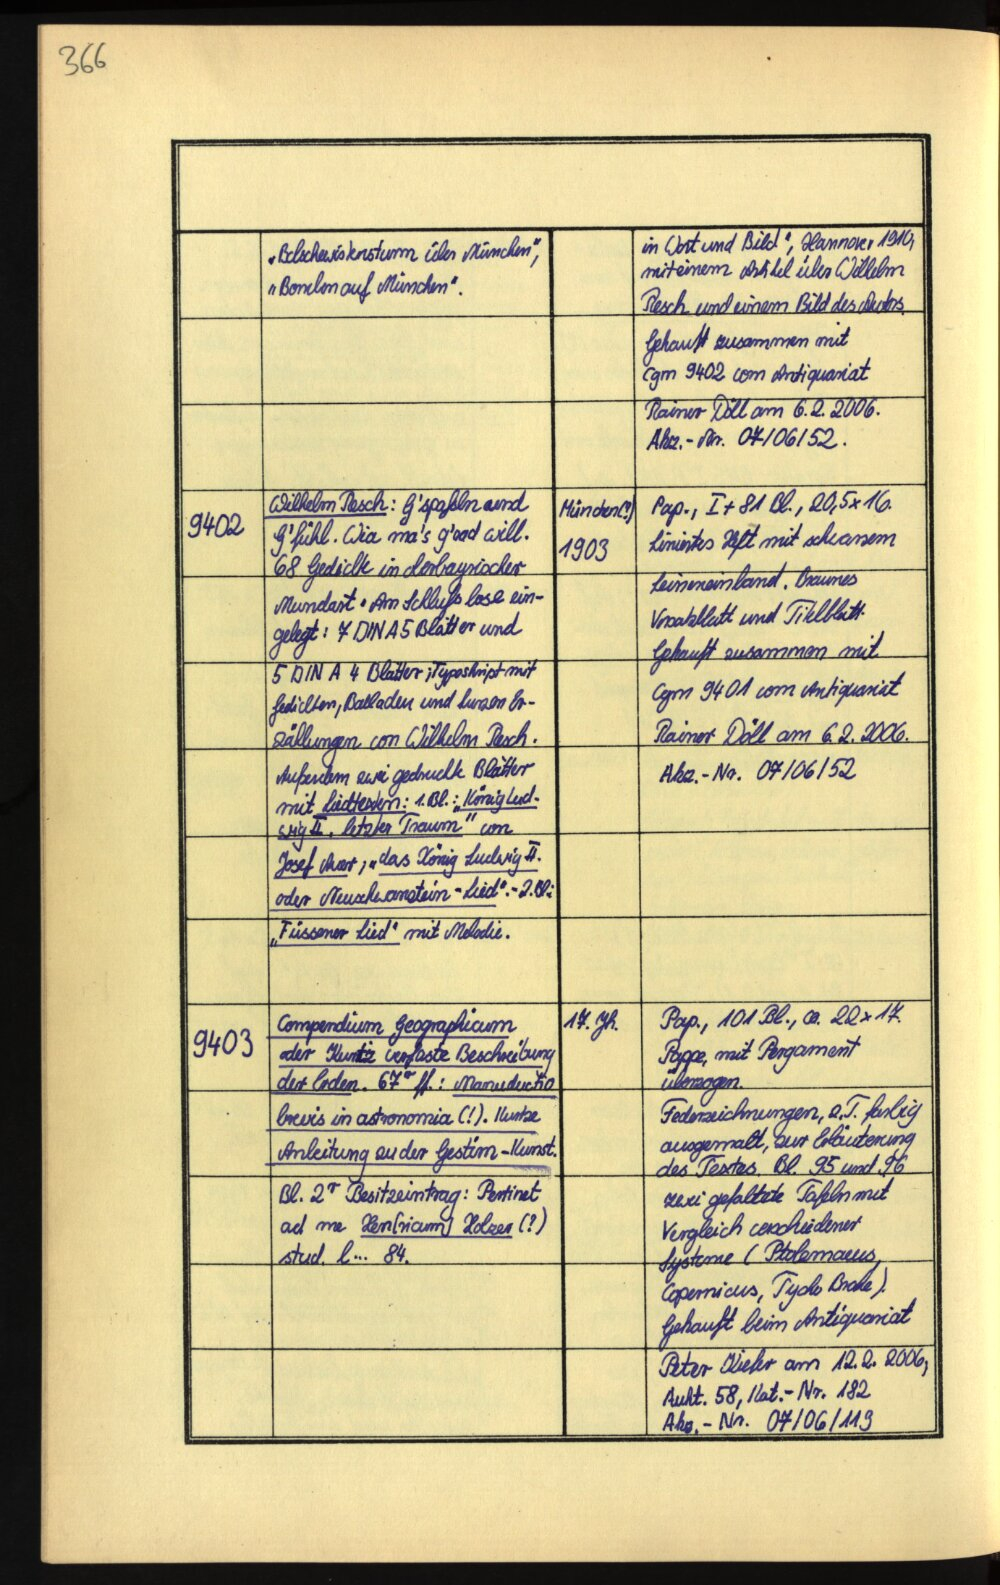 366
„Bolschewistensturm über München“,
„Bomben auf München“.
in Wort und Bild“, Hannover 1910,
mit einem Artikel über Wilhelm
Pesch und einem Bild des Autors.
Gekauft zusammen mit
Cgm 9402 vom Antiquariat
Rainer Döll am 6.2.2006.
Akz.-Nr. 07/06/52.
9402
Wilhelm Pesch: G'spaßln und
G'fühl. Wia ma's g'rad will.
68 Gedichte in oberbayrischer
Mundart. Am Schluß lose ein-
gelegt: 7 DIN A5 Blätter und
5 DIN A 4 Blätter; Typoskript mit
Gedichten, Balladen und kurzen Er-
zählungen von Wilhelm Pesch.
Außerdem zwei gedruckte Blätter
mit Liedtexten: 1. Bl.: „König Lud-
wig II. letzter Traum“ von
Josef Auer; „das König Ludwig II.
oder Neuschwanstein-Lied“. - 2. Bl.:
„Füssener Lied“ mit Melodie.
München(?)
1903
Pap., I + 81 Bl., 20,5 x 16.
Liniertes Heft mit schwarzem
Leineneinband. Braunes
Vorsatzblatt und Titelblatt.
Gekauft zusammen mit
Cgm 9401 vom Antiquariat
Rainer Döll am 6.2.2006.
Akz.-Nr. 07/06/52
9403
Compendium Geographicum
oder Kurtz verfaste Beschreibung
der Erden. 67r ff.: Manuductio
brevis in astronomia (!). Kurtze
Anleitung zu der Gestirn-Kunst.
Bl. 2r Besitzeintrag: Pertinet
ad me Hen[ricum] Holzer (?)
stud. l... 84.
17. Jh.
Pap., 101 Bl., ca. 22 x 17.
Pappe, mit Pergament
überzogen.
Federzeichnungen, z.T. farbig
ausgemalt, zur Erläuterung
des Textes. Bl. 95 und 96
zwei gefaltete Tafeln mit
Vergleich verschiedener
Systeme (Ptolemaeus,
Copernicus, Tycho Brahe).
Gekauft beim Antiquariat
Peter Kiefer am 12.2.2006,
Aukt. 58, Kat.-Nr. 182
Akz.-Nr. 07/06/119